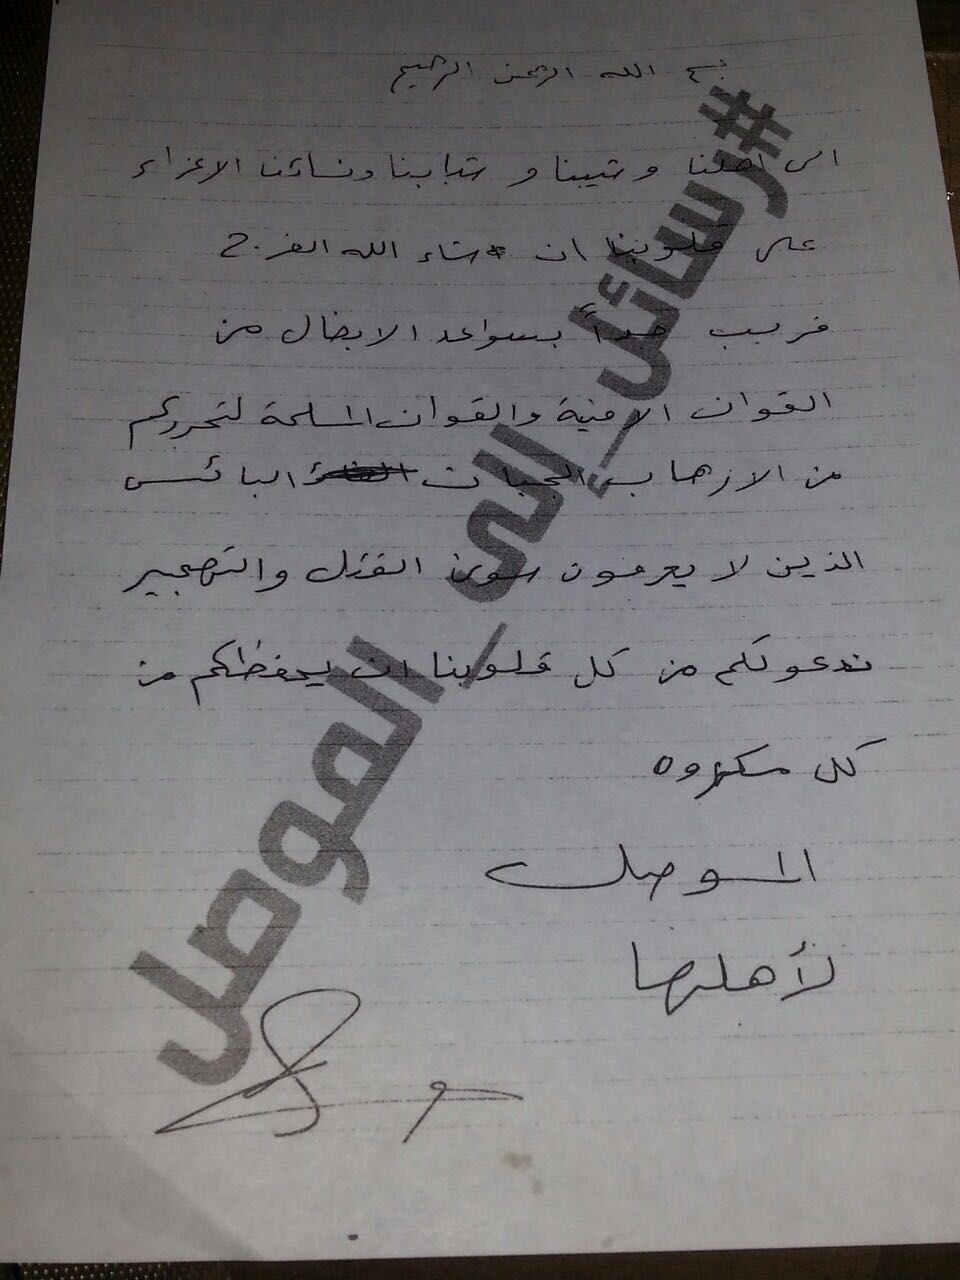 بسم الله الرحمن الرحيم
الى اهلنا وشيبنا و شبابنا ونسائنا الاعزاء
على قلوبنا ان شاء الله الفرج
قريب جداً بسواعد الابطال من
القوات الامنية والقوات المسلحة لتحرركم
من الارهاب الجبان البائس
الذين لا يعرفون سوى القتل والتهجير
ندعو لكم من كل قلوبنا ان يحفظكم من
كل مكروه
الموصل
لأهلها
#رسائل_إلى_الموصل